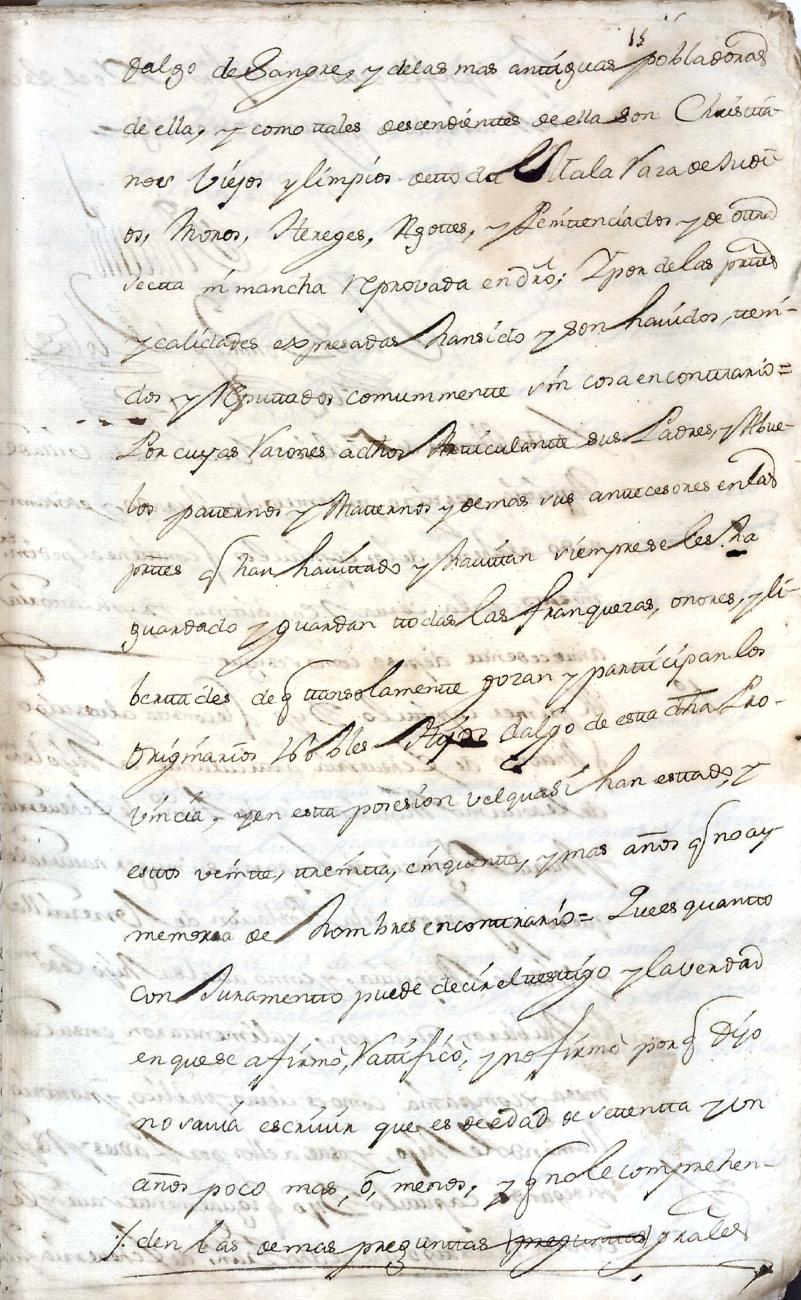 15
dalgo de Sangre, y delas mas antiguas pobladoras
de ella, y como ttales descendienttes de ella son Christtia-
nos Viejos y limpios detto da Mala Raza de Judi
os, Moros, Hereges, Agottes, y Penittenciados y de ottra
sectta ni mancha reprovada en dro; Y por de las prttes
y calidades expresadas han sido y son havidos, tteni-
dos y Reputtados comummentte sin cosa en conttrario=
Por cuyas Razones a dhos Artticulantte sus Padres, y Abue-
los patternos y Matternos y demas sus anttecesores en las
prttes q han havittado y havittan siempre se les ha
guardado y guardan ttodas las franquezas, onores, y li-
berttades de q ttansolamentte gozan y partticipan los
Originarios Nobles Hijos dalgo de esta dha Pro-
vincia, y en esta posesion vel quasi han esttado, y
esttos veintte, ttreintta, cinquentta, y mas años q no ay
memoria de hombres en conttrario= Que es quantto
con Juramentto puede decir el ttesttigo y la verdad
en que se afirmò, Rattificò, y no firmò por q Dijo
no savia escrivir que es de edad de settentta y un
años poco mas, ò, menos, y q no le comprehen-
den las demas preguntas (preguntas) grales